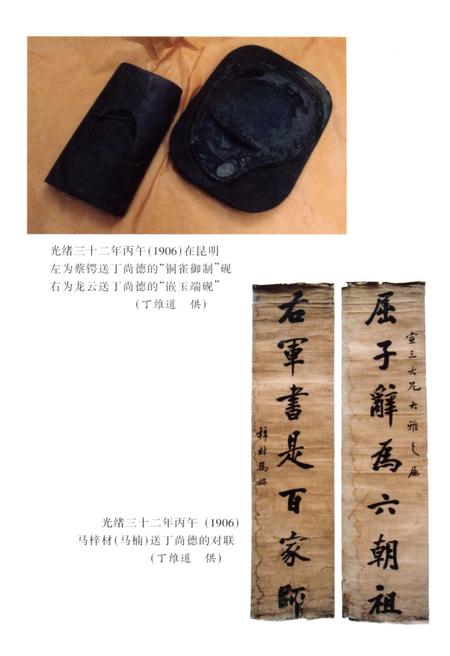 光绪三十二年丙午(1906)在昆明
左为蔡锷送丁尚德的“铜雀御制”砚
右为龙云送丁尚德的“嵌玉端砚”
(丁维道 供)
屈子辭為六朝祖
宣三大兄大雅之屬
右軍書是百家師
梓材馬
光绪三十二年丙午 (1906)
马梓材(马楠)送丁尚德的对联
(丁维道 供)